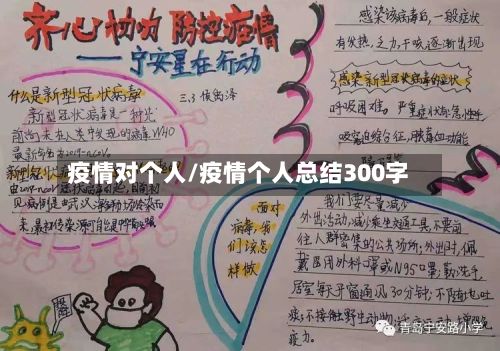 齐心协力 防控疫情
——宁安星在行动
什么是新型冠状病毒
三.3
新型冠状病毒是一种
前尚未在人类中发现的病毒WHO
感染该病毒后,一般症状
有发热,乏力,干咳,逐渐出现
感染新型冠状病毒的症状
呼吸困难,严重症状
疫情对个人/疫情个人总结300字
面对
病毒,我
们该怎
样做
我们要尽量减少
外出活动,减少乘坐公共交通工具,不要前
往人群密集的公共场所;外出时,佩
戴医用外科口罩或N95口罩;勤洗手,
居室每天开窗通风30分钟;不随地吐
痰;不接触野生动物
青岛宁安路小学